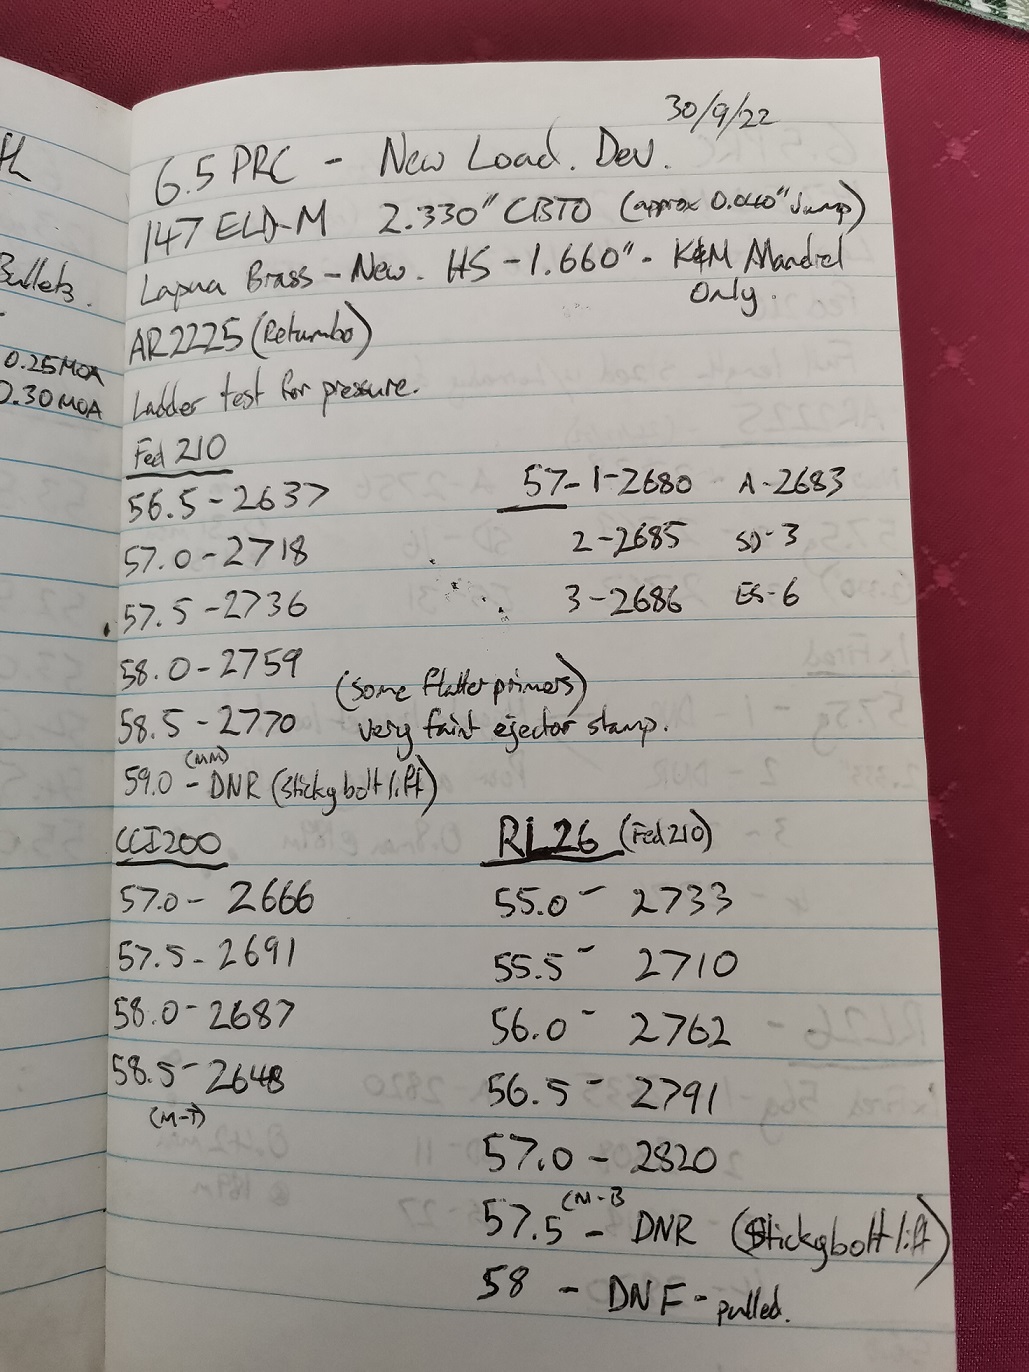 30/9/22
6.5 PRC - New Load. Dev.
147 ELD-M 2.330" CBTO (approx 0.040" Jump)
Lapua Brass - New. HS - 1.660". K&M Mandrel
Only.
AR2225 (Retumbo)
Ladder test for pressure.
Fed 210
56.5 - 2637
57.0 - 2718
57.5 - 2736
58.0 - 2759
58.5 - 2770
(some flatter primers)
very faint ejector stamp.
(MM)
59.0 - DNR (Sticky bolt lift)
57 - 1 - 2680 A - 2683
2 - 2685 SD - 3
3 - 2686 ES - 6
CCI 200
57.0 - 2666
57.5 - 2691
58.0 - 2687
58.5 - 2648
(M-T)
RL26 (Fed 210)
55.0 - 2733
55.5 - 2710
56.0 - 2762
56.5 - 2791
57.0 - 2820
(M-B
57.5 - DNR (Sticky bolt lift)
58 - DNF - pulled.
Bullets.
0.25 MOA
0.30 MOA